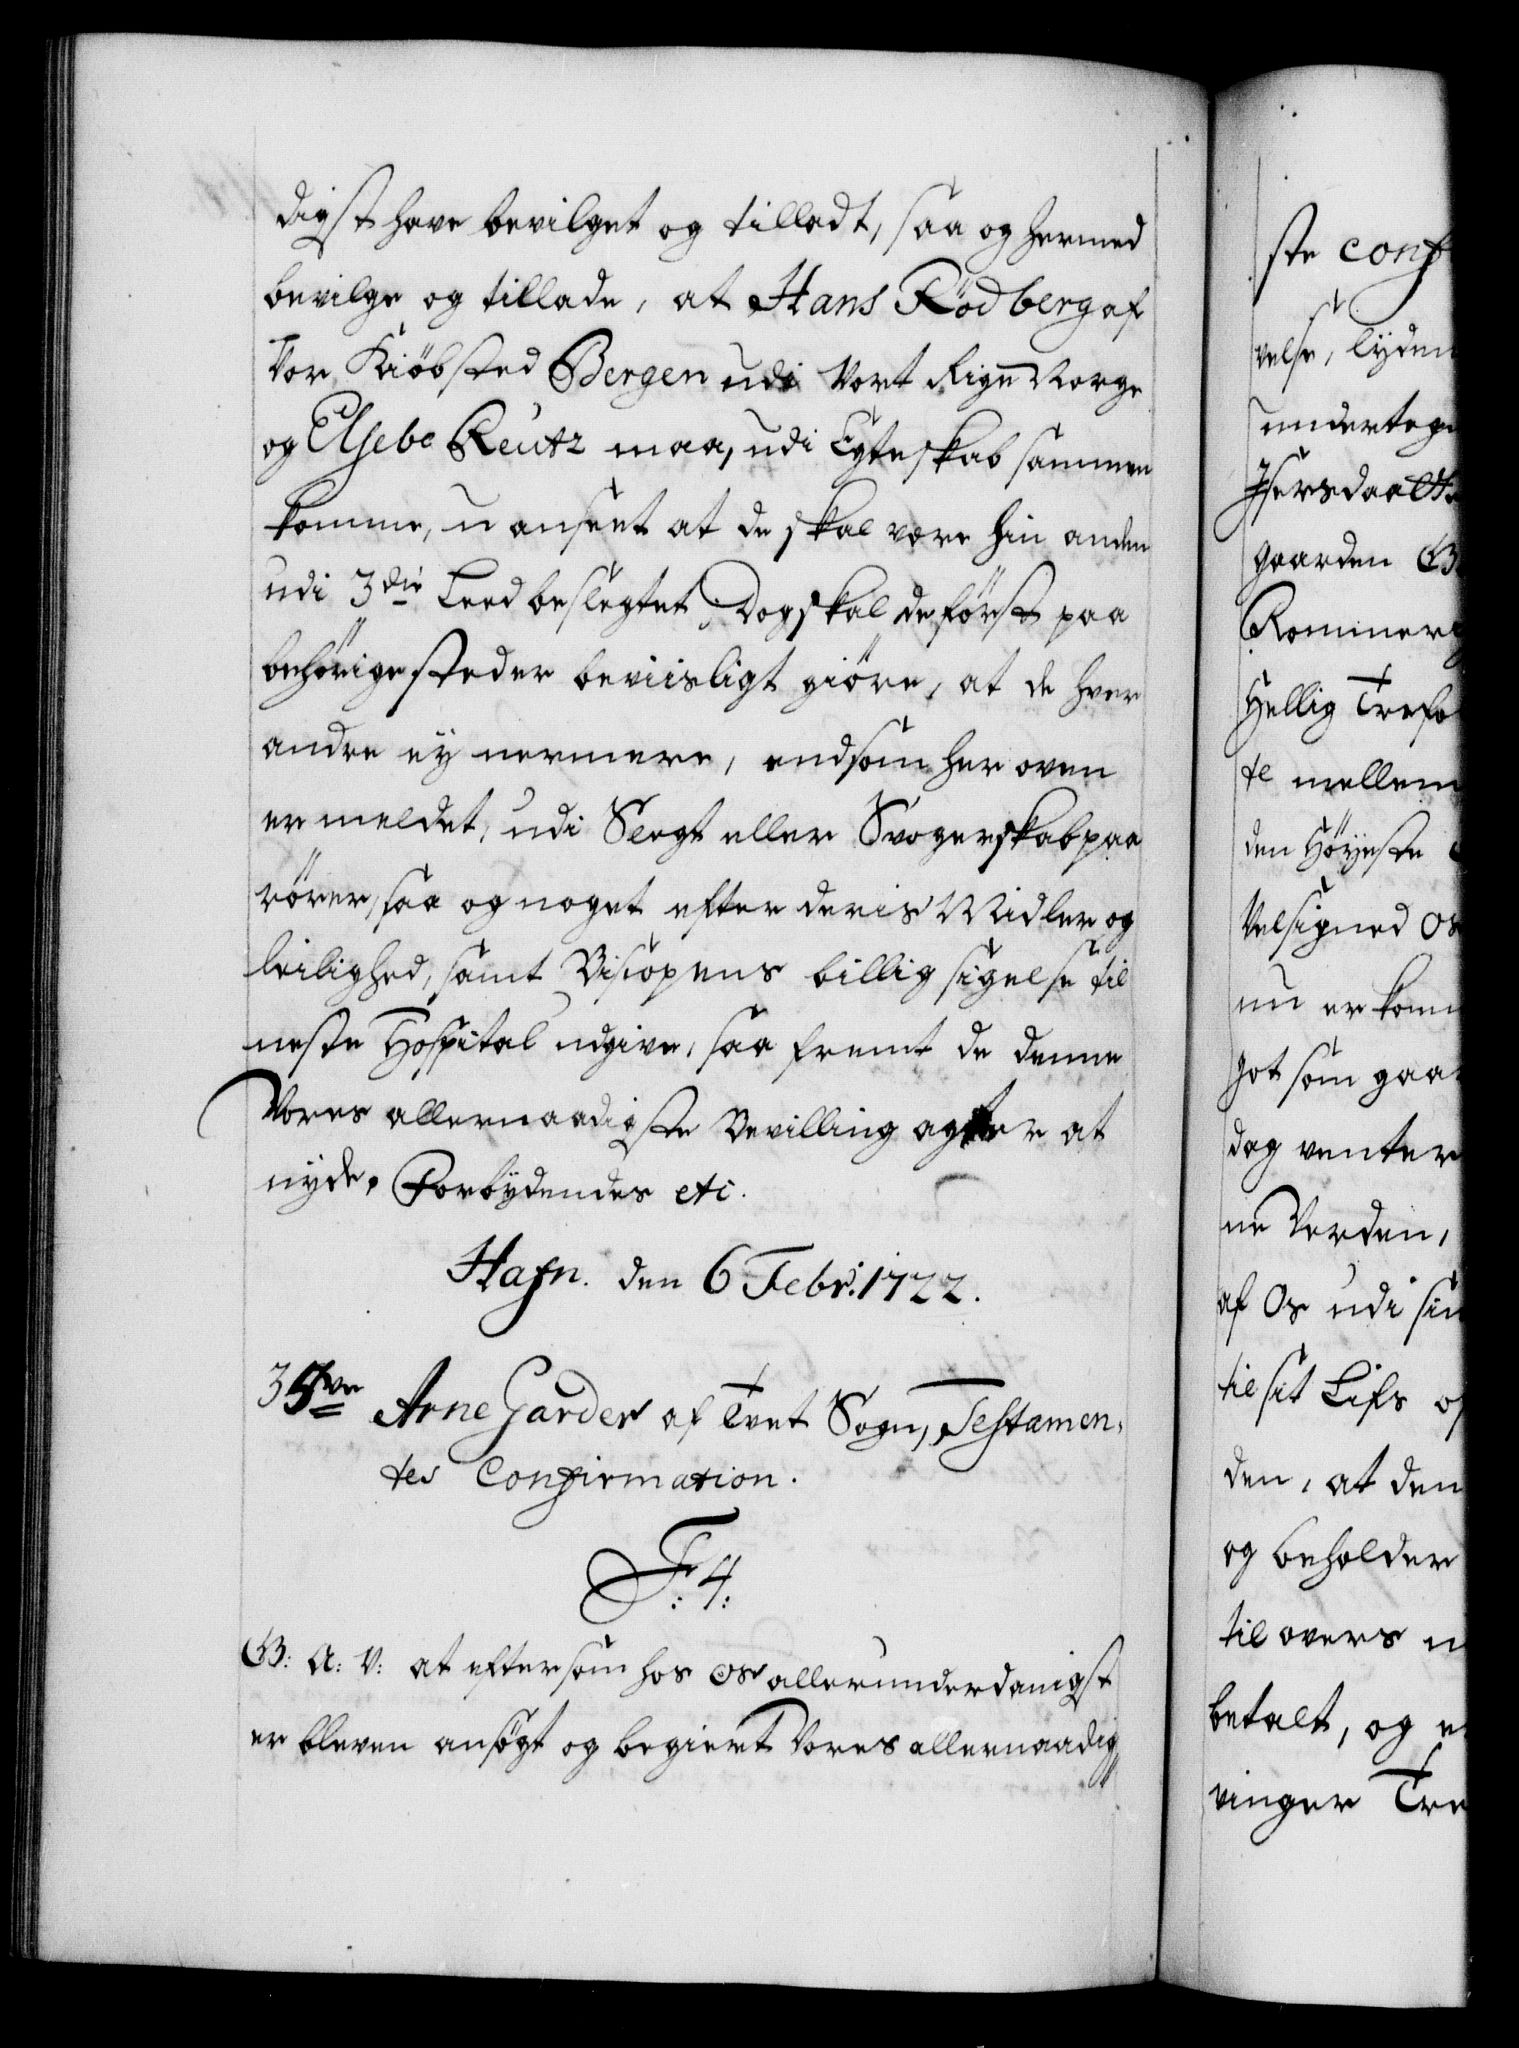 digst have bevilget og tilladt, saa og hermed
bevilge og tillade, at Hans Rödberg af
Vor Kiöbsted Bergen udi Vort Rige Norge
og Elsebe Reutz maa, udi Egteskab sammen
komme, u anseet at de skal være hin anden
udi 3die Leed beslegtet, Dog skal de först paa
behörige steder beviisligt giöre, at de hver
andre ey nermere, end som her oven
er meldet, udi Slegt eller Svogerskab paa
rörer, saa og noget efter deris Midler og
leilighed, samt Biscopens billig sigelse til
neste Hospital udgive, saa fremt de denne
Vores allernaadigste Bevilling agter at
nyde. Forbydendes etc.
Hafn. den 6 Febr. 1722.
35ve Arne Garder af Tvet Sogn, Testamen,
tes Confirmation.
F: 4:
G: A: V: at eftersom hos Os allerunderdanigst
er bleven ansögt og begiert Vores allernaadig
ste conf
velse, lyden
undertegn
Isersdaal
gaarden
Rommer
Hellig Trefo
te mellem
den Höyeste
Velsigned Os
nu er kom
got som gaa
dag venter
ne Verden,
af Os udi sin
til sit Lifs o
den, at den
og beholder
til overs
betalt, og
vinger Tre